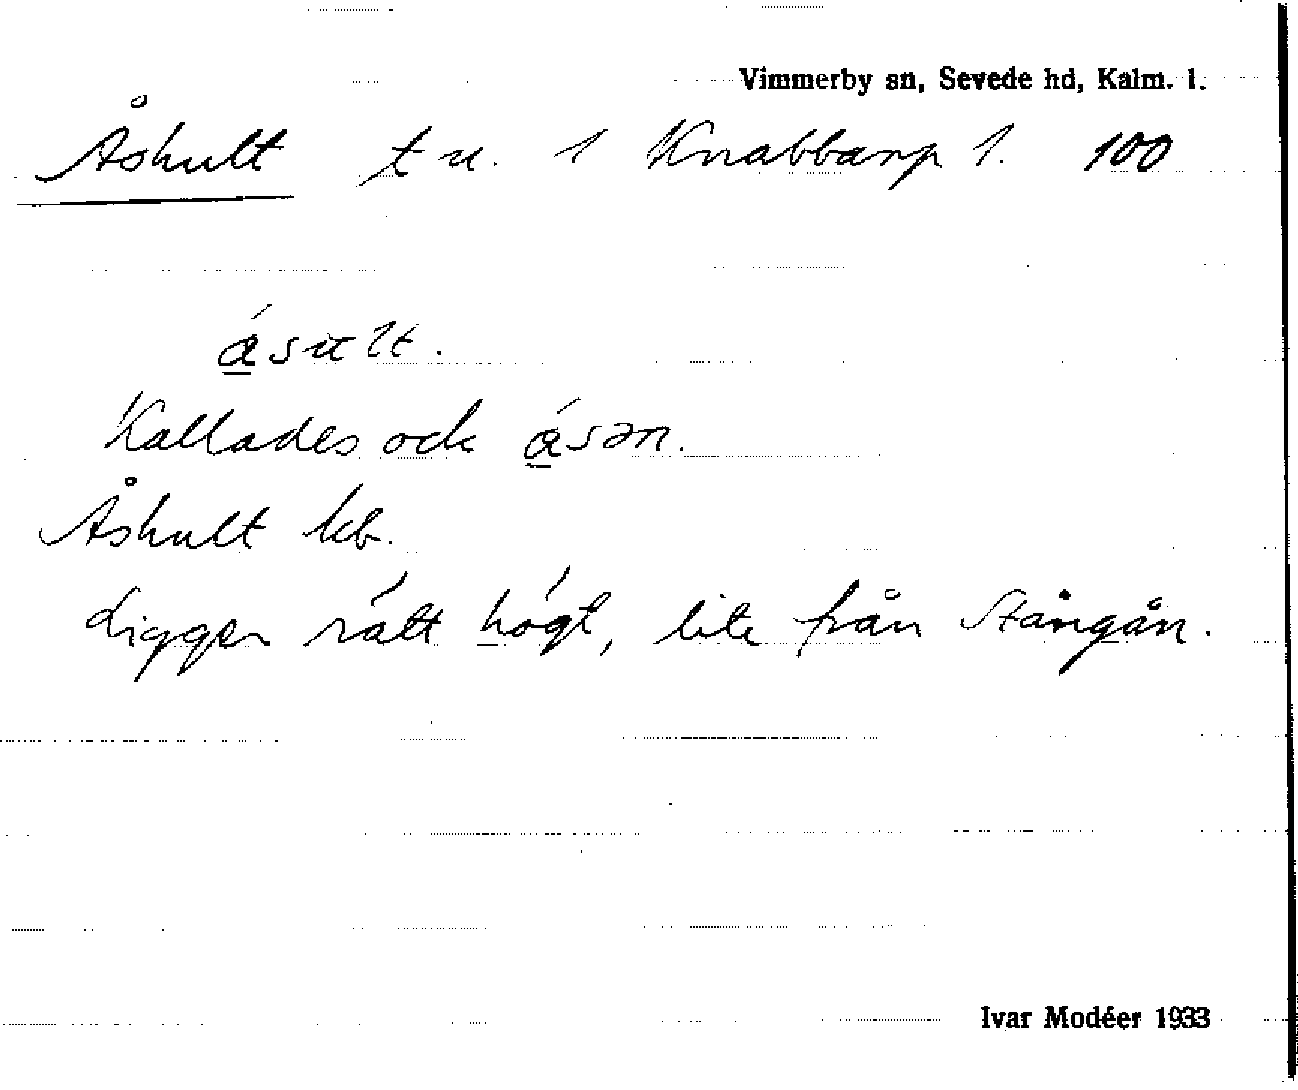 Vimmerby sn, Sevede hd, Kalm. l.
Åshult t u. 1 Knabbarp 1. 100
á̲sult.
Kallades ock á̲sən.
Åshult kb.
Ligger rätt högt, lite från Stångån.
Ivar Modéer 1933